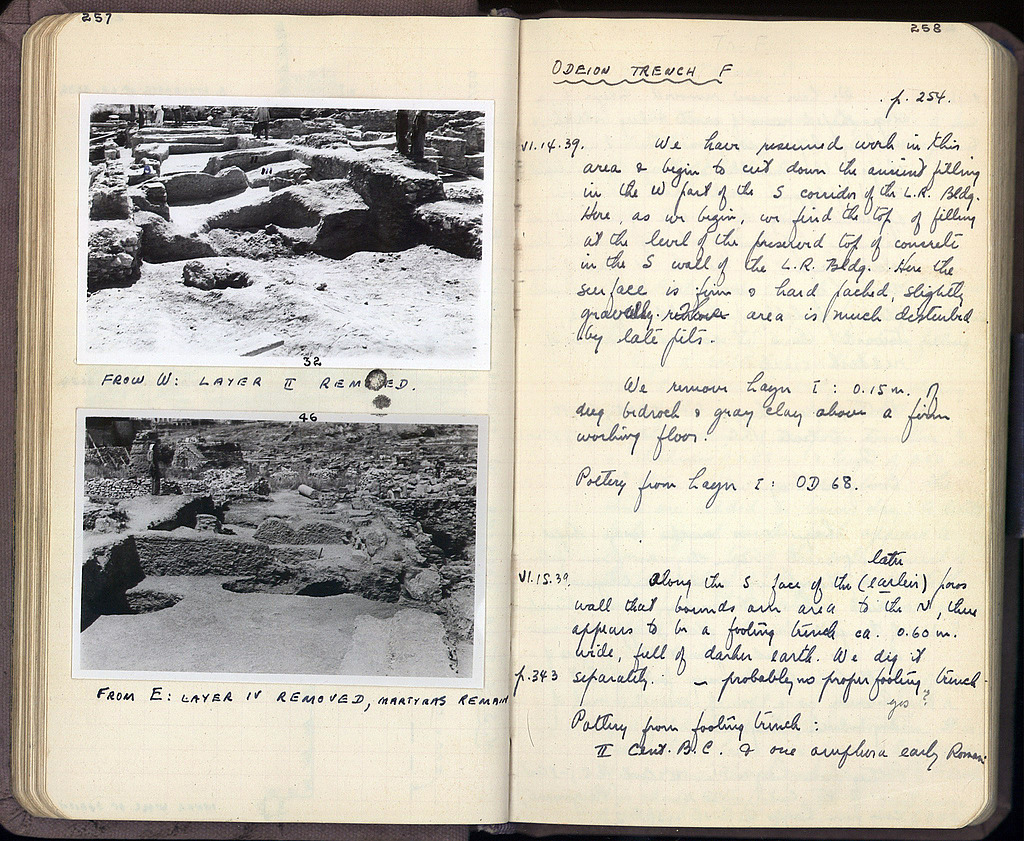 257
32
FROM W: LAYER II REMOVED.
46
FROM E: LAYER IV REMOVED, MARTYRAS REMAIN
258
ODEION TRENCH F
p. 254.
VI.14.39. We have resumed work in this
area & begin to cut down the ancient filling
in the W part of the S corridor of the L.R. Bldg.
Here, as we begin, we find the top of filling
at the level of the preserved top of concrete
in the S wall of the L.R. Bldg. Here the
surface is firm & hard packed, slightly
gravelly. area is much disturbed
by late pits.
We remove Layer I: 0.15 m. of
dug bedrock & gray clay above a firm
working floor.
Pottery from Layer I: OD 68.
later
VI.15.39. Along the S face of the (earlier) poros
wall that bounds our area to the N, there
appears to be a footing trench ca. 0.60 m.
wide, full of darker earth. We dig it
p.343 separately. – probably no proper footing trench
yes?
Pottery from footing trench:
II Cent. B.C. & one amphora early Roman